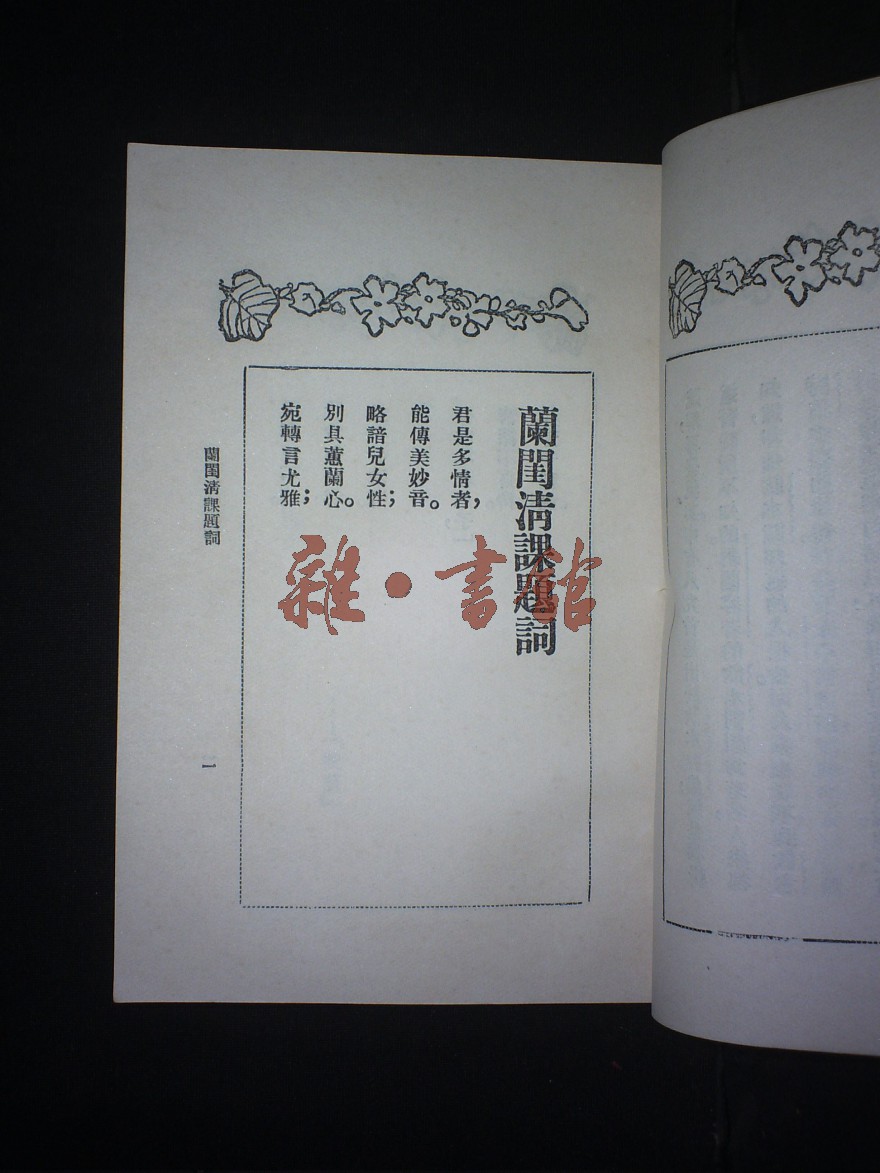 蘭閨淸課題詞
君是多情者，
能傳美妙音。
略諳兒女性；
別具蕙蘭心。
宛轉言尤雅；
蘭閨淸課題詞
一
雜·書館